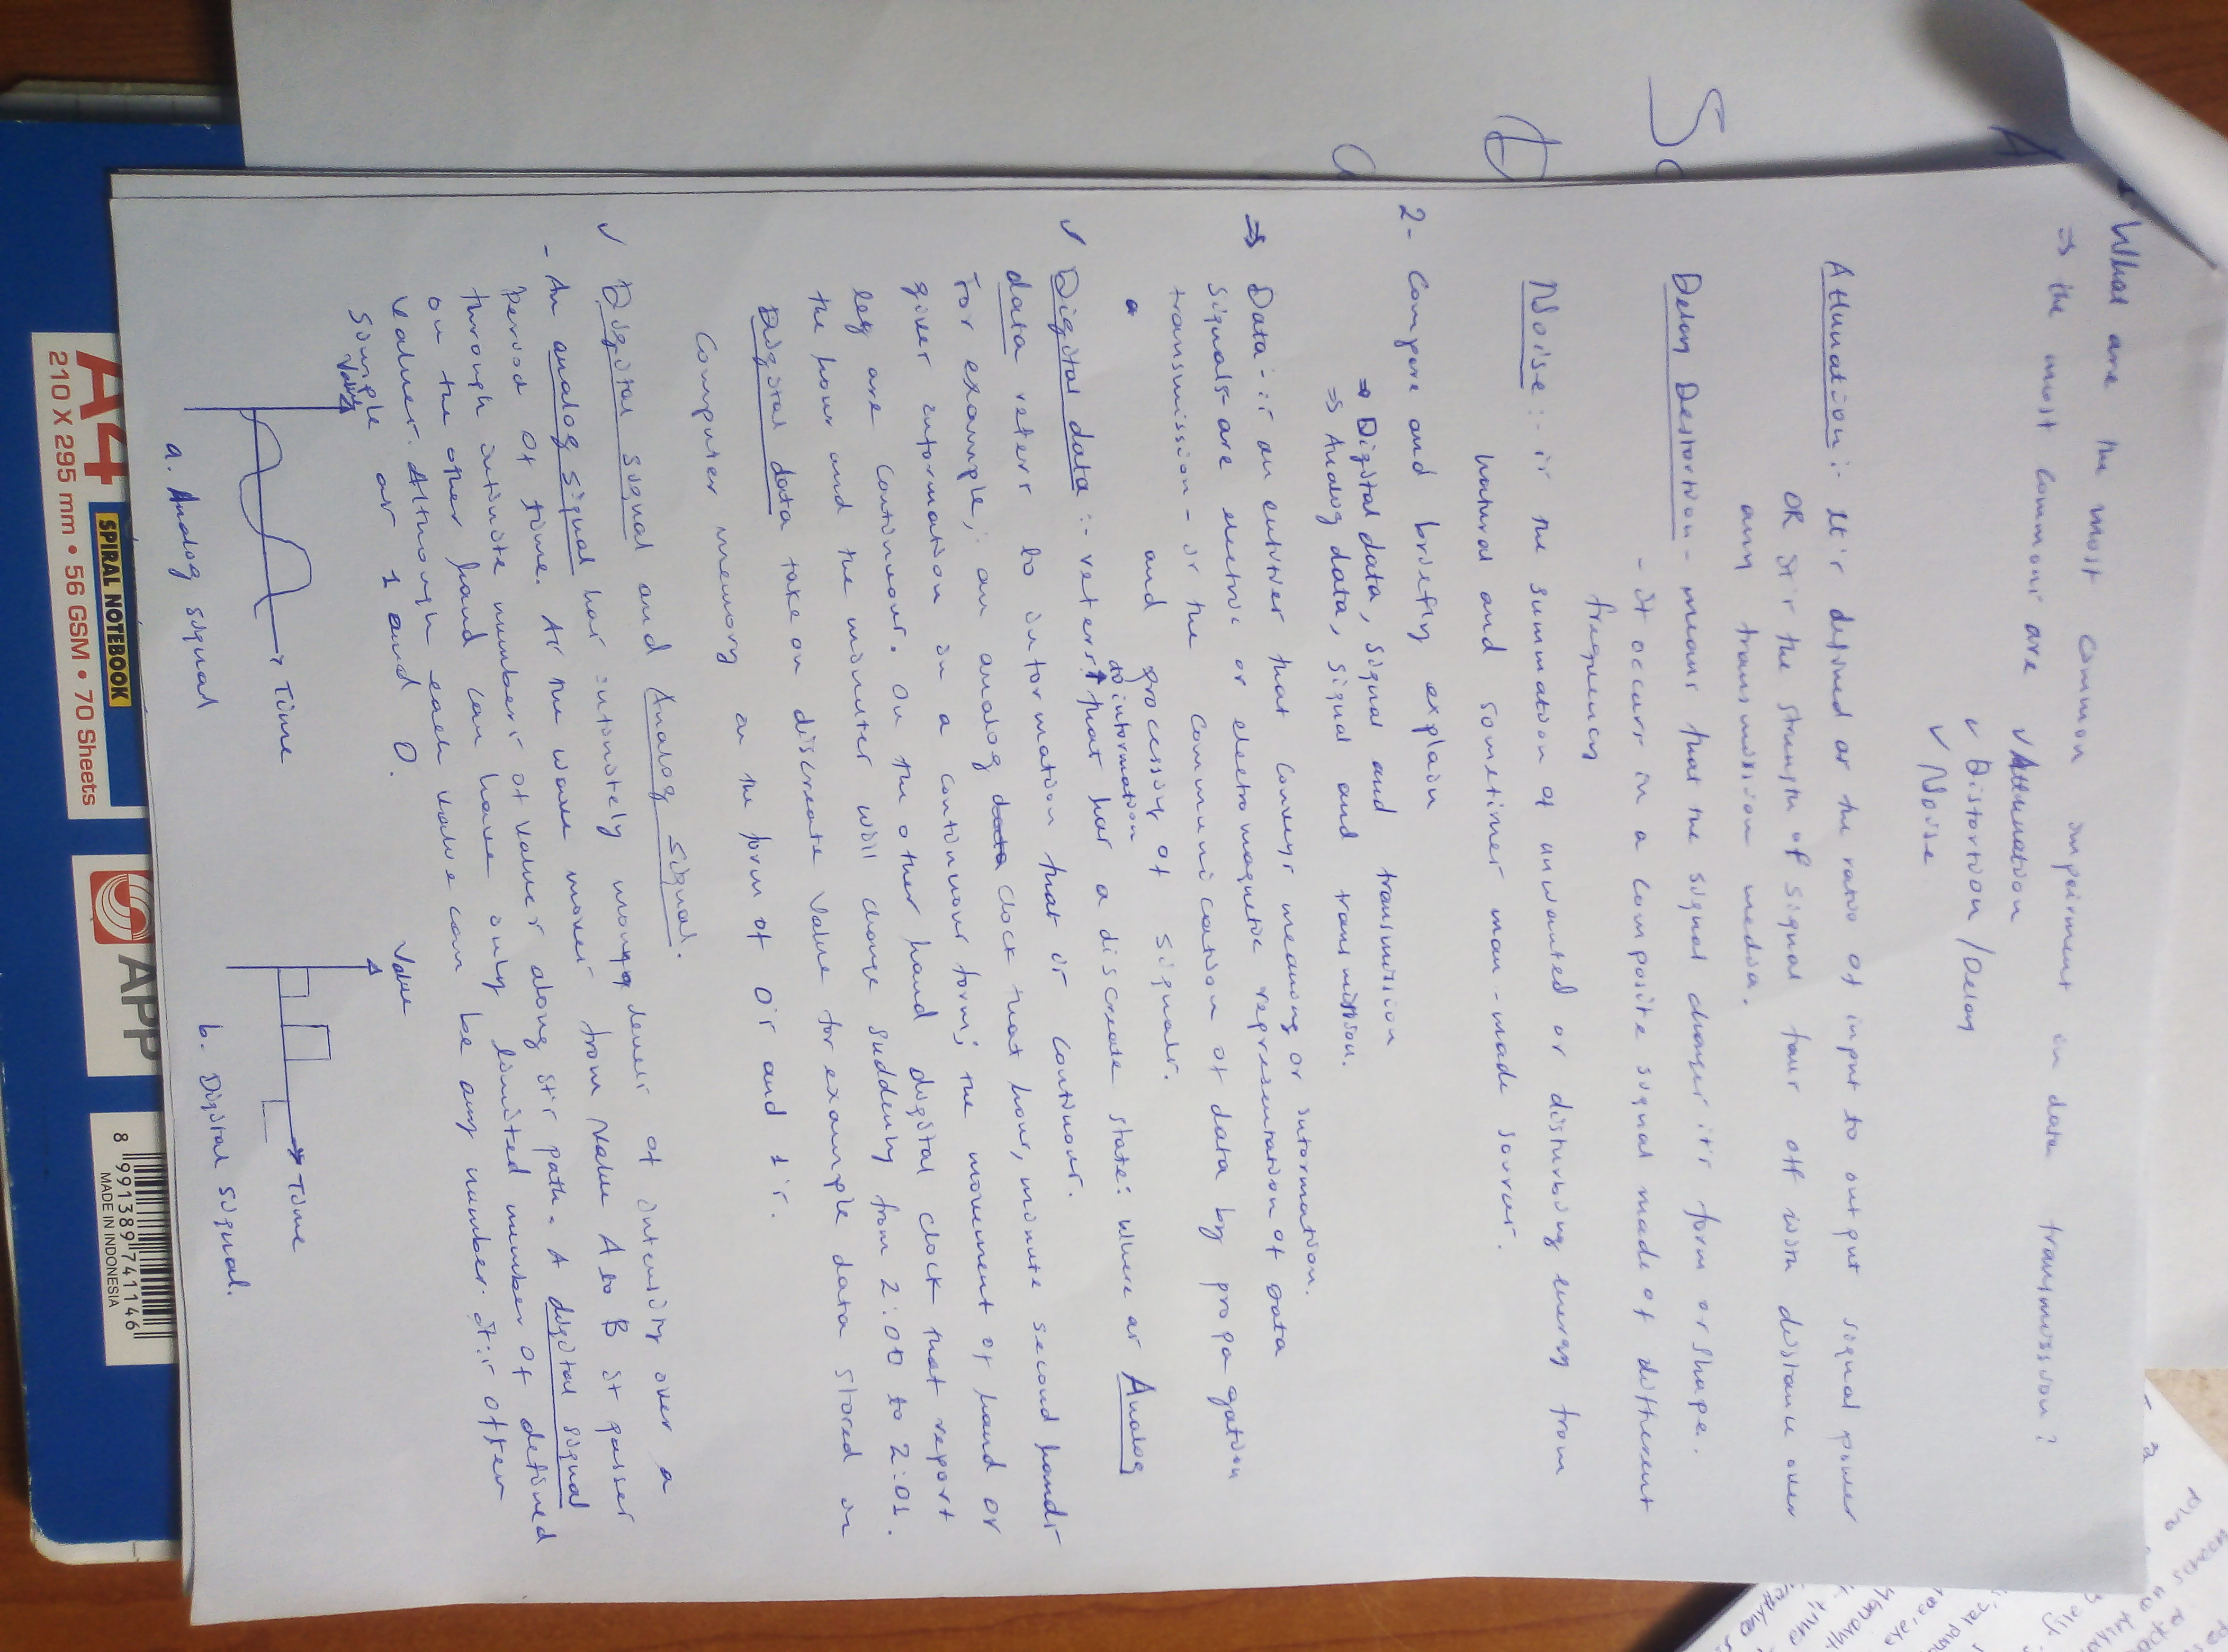 What are the most common impairment in data transmission?
⇒ the most common are
✓ Attenuation
✓ Distortion / Delay
✓ Noise
Attenuation: It is defined as the ratio of input to output signal power
OR it is the strength of signal fall off with distance over
any transmission media.
Delay Destortion - means that the signal changes its form or shape.
- it occurs in a composite signal made of different
frequency
Noise: is the summation of unwanted or disturbing energy from
natural and sometimes man-made sources.
2- Compare and briefly explain
⇒ Digital data, signal and transmission
⇒ Analog data, signal and transmission.
⇒ Data: is an entities that conveys meaning or information.
signals - are electric or electromagnetic representation of data
transmission - is the communication of data by propagation
and processing of signals.
✓ Digital data :- refers to information that has a discreate states where as Analog
data refers to information that is continous.
For example, an analog clock that hour, minute second hands
gives information in a continous form; the movement of hand or
leg are continous. On the other hand digital clock that report
the hour and the minutes will change suddenly from 2:00 to 2:01.
Digital data take on discreate value for example data stored in
Computer memory in the form of 0's and 1's.
✓ Digital signal and Analog signal.
- An analog signal has infinitely many levels of intensity over a
Period of time. As the wave moves from value A to B it passes
through infinite number of values along its path. A digital signal
on the other hand can have only limited number of defined
values. Although each value can be any number. It is often
simple as 1 and 0.
Value
Time
a. Analog signal
Value
Time
b. Digital signal.
A4
210 X 295 mm • 56 GSM • 70 Sheets
SPIRAL NOTEBOOK
APP
8 991389 741146
MADE IN INDONESIA